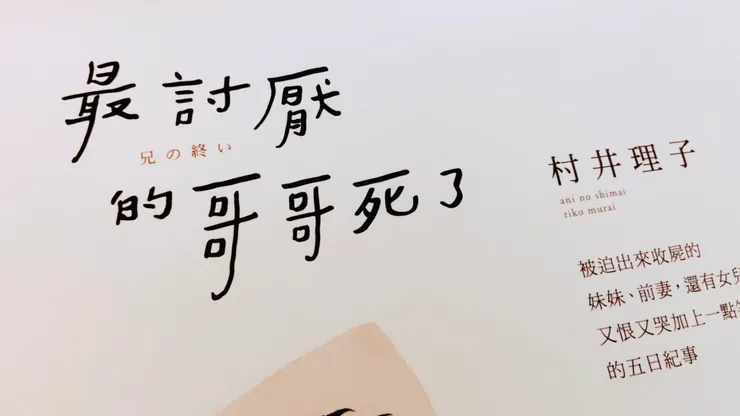 最討厭
兄の終い
的哥哥死了
村井理子
ani no shimai
riko murai
被迫出來收屍的
妹妹、前妻,還有女兒
又恨又哭加上一點
的五日紀事